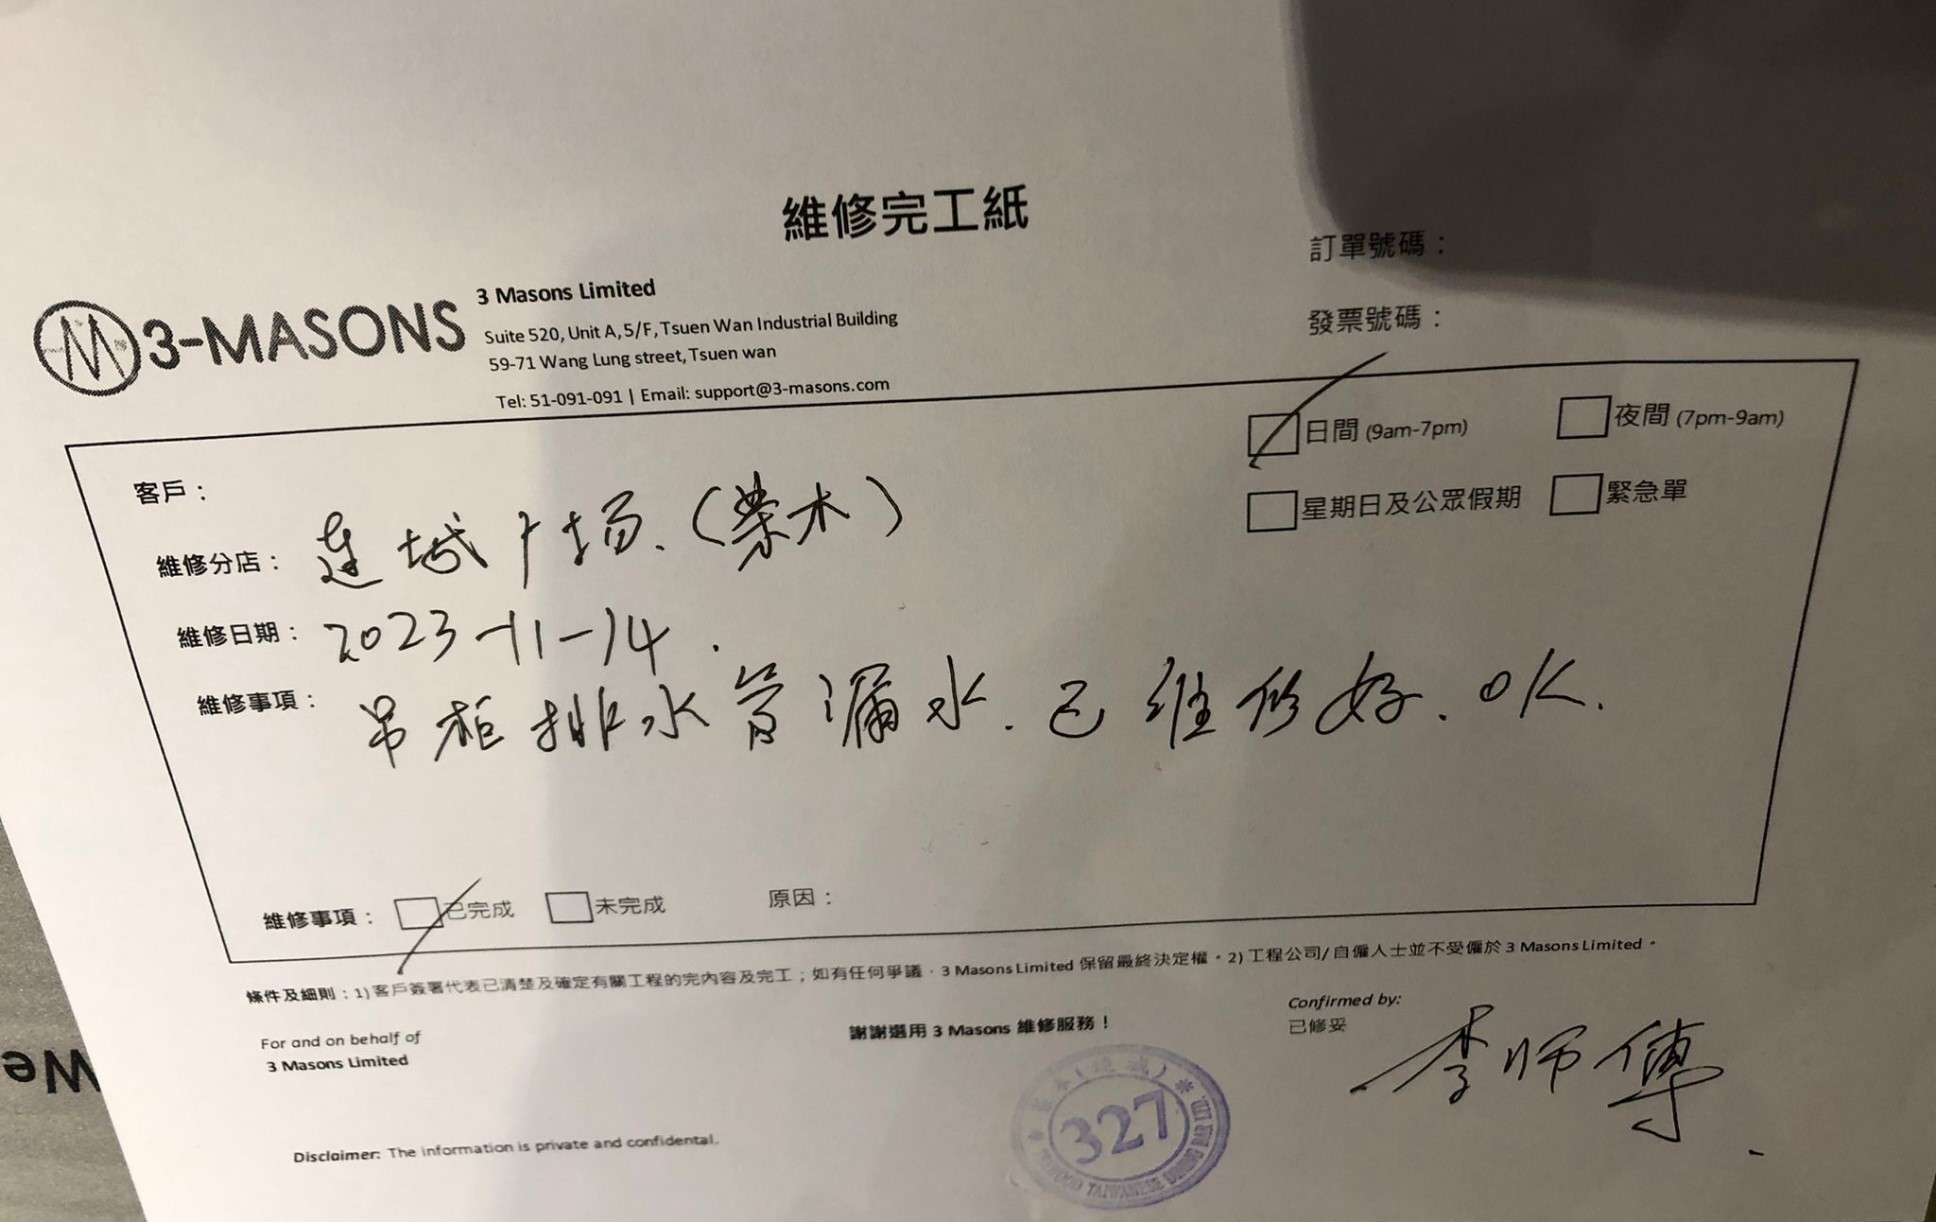 維修完工紙
訂單號碼：
發票號碼：
3-MASONS
3 Masons Limited
Suite 520, Unit A, 5/F, Tsuen Wan Industrial Building
59-71 Wang Lung street, Tsuen wan
Tel: 51-091-091 | Email: support@3-masons.com
日間 (9am-7pm) 夜間 (7pm-9am)
星期日及公眾假期 緊急單
客戶：
維修分店： 连城广场.(業木)
維修日期： 2023-11-14.
維修事項： 吊柜排水管漏水.已维修好.OK.
維修事項： 已完成 未完成 原因：
條件及細則：1) 客戶簽署代表已清楚及確定有關工程的完內容及完工；如有任何爭議，3 Masons Limited 保留最終決定權。2) 工程公司/自僱人士並不受僱於 3 Masons Limited。
For and on behalf of
3 Masons Limited
謝謝選用 3 Masons 維修服務！
Confirmed by:
已修妥
李师傅.
327
TAIWANESE DINING BAR LTD.
Disclaimer: The information is private and confidental.
We